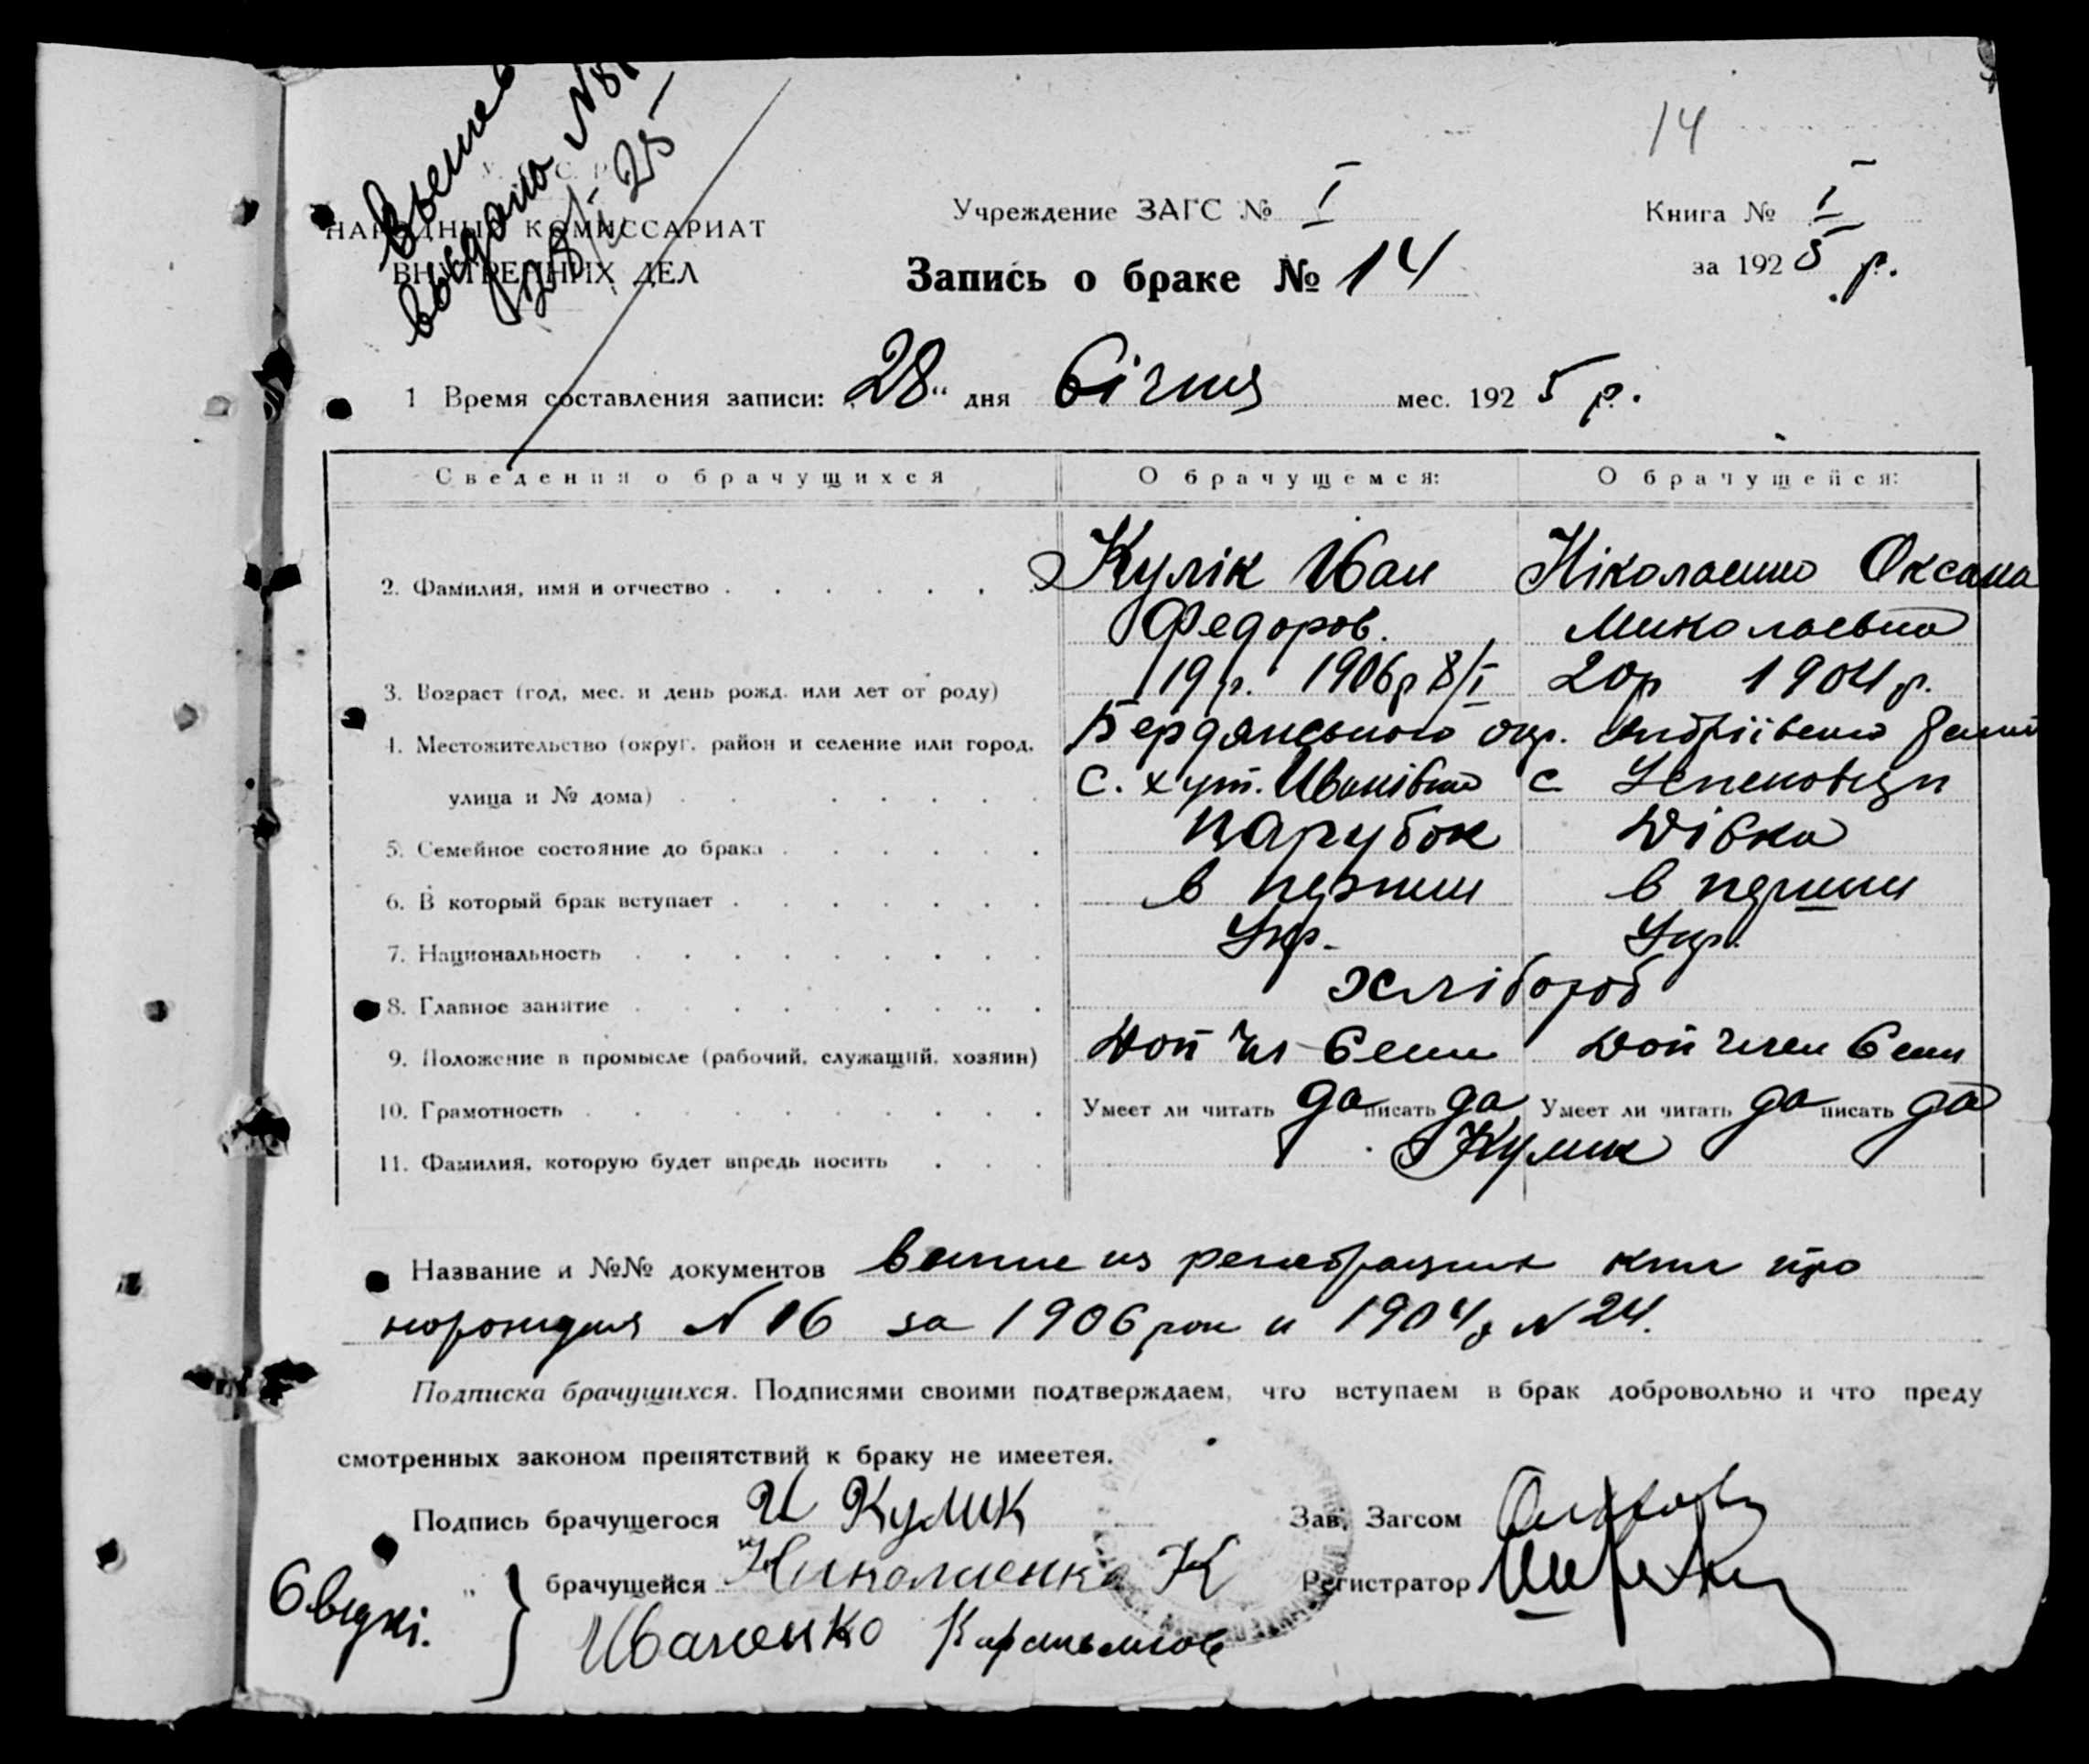 14
НАРОДНЫЙ КОМИССАРИАТ
ВНУТРЕННИХ ДЕЛ
Учреждение ЗАГС № I
Книга № I
за 1925 р.
Запись о браке № 14
1 Время составления записи: "28" дня Січня мес. 1925 р.
Сведения о брачущихся О брачущемся: О брачущейся:
2. Фамилия, имя и отчество Кулік Иван Ніколаенко Оксана
Федоров. Миколаевна
3. Возраст (год, мес. и день рожд. или лет от роду) 19 р. 1906р 8/I 20р 1904 р.
4. Местожительство (округ, район и селение или город, Бердянського окр. Андріівського
улица и № дома) с. хут. Иванівка с.
5. Семейное состояние до брака парубок Дівка
6. В который брак вступает в первий в перший
7. Национальность Укр. Укр.
8. Главное занятие хлібороб
9. Положение в промысле (рабочий, служащий, хозяин) Доп чл семи Доп член семи
10. Грамотность Умеет ли читать да писать да Умеет ли читать да писать да
11. Фамилия, которую будет впредь носить Кулик
Название и №№ документов книг про
народження N 16 за 1906 рок и 1904 р N 24.
Подписка брачущихся. Подписями своими подтверждаем, что вступаем в брак добровольно и что преду
смотренных законом препятствий к браку не имеется.
Подпись брачущегося И Кулик
Зав. Загсом
" брачущейся Николаенко К
Регистратор
Свідкі. } Иваненко